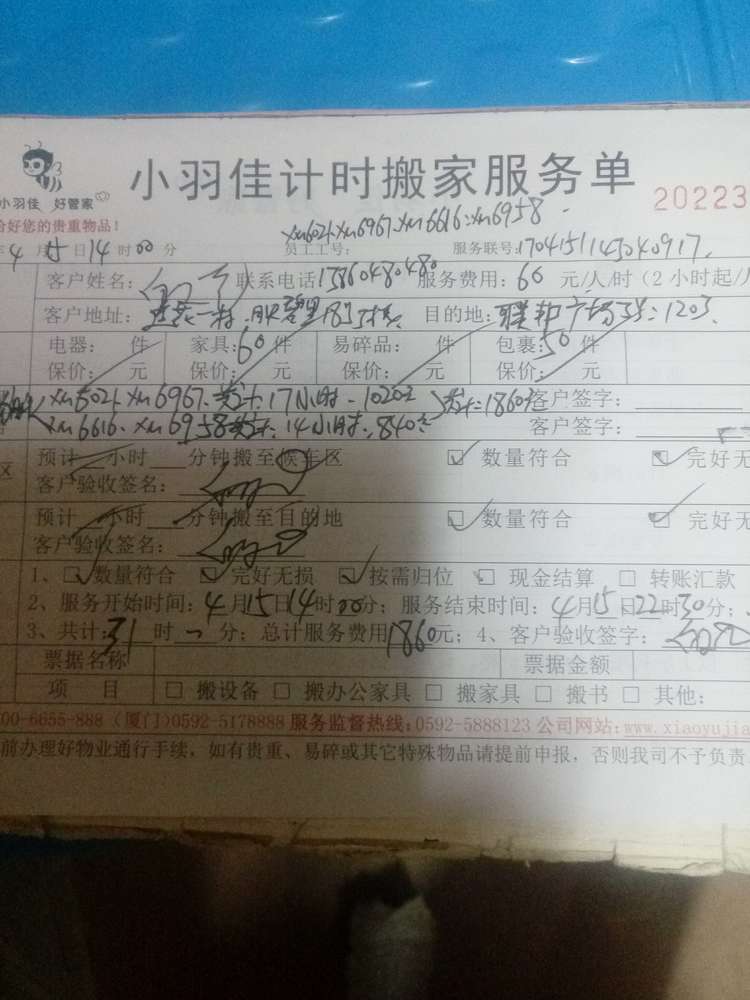 小羽佳 好管家
小羽佳计时搬家服务单
20223
份好您的贵重物品!
xm6021 xm6967 xm6616 xm6958
年4月15日14时00分 员工工号: 服务联号:1704151145040917
客户姓名: 联系电话15860480480 服务费用:60元/人/时(2小时起/
客户地址: 目的地: 广场 1203
电器: 件 家具:60件 易碎品: 件 包裹:50件
保价: 元 保价: 元 保价: 元 保价: 元
xm6021 xm6967 共计17小时 1020元 共计:1860元 客户签字:
xm6616 xm6958共计14小时 840元 客户签字:
区 预计 小时 分钟搬至候车区 数量符合 完好无
客户验收签名:
预计 小时 分钟搬至目的地 数量符合 完好无
客户验收签名:
1、数量符合 完好无损 按需归位 现金结算 转账汇款
2、服务开始时间:4月15日14时00分;服务结束时间:4月15日22时30分;
3、共计:31时 分;总计服务费用1860元;4、客户验收签字:
票据名称 票据金额
项 目 搬设备 搬办公家具 搬家具 搬书 其他:
00-6655-888(厦门)0592-5178888 服务监督热线:0592-5888123 公司网站:www.xiaoyujia
前办理好物业通行手续,如有贵重、易碎或其它特殊物品请提前申报,否则我司不予负责